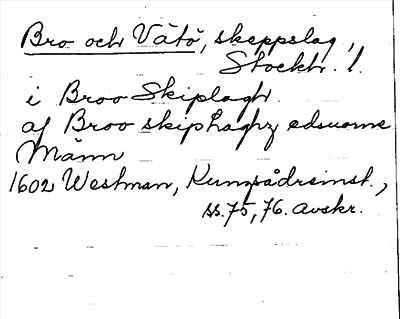 Bro och Vätö, skeppslag,
Stockh. l.
i Broo Skiplagh.
af Broo skiplaghz edsuorne
Männ
1602 Westman, Kungsådreinst.,
ss. 75, 76. Avskr.